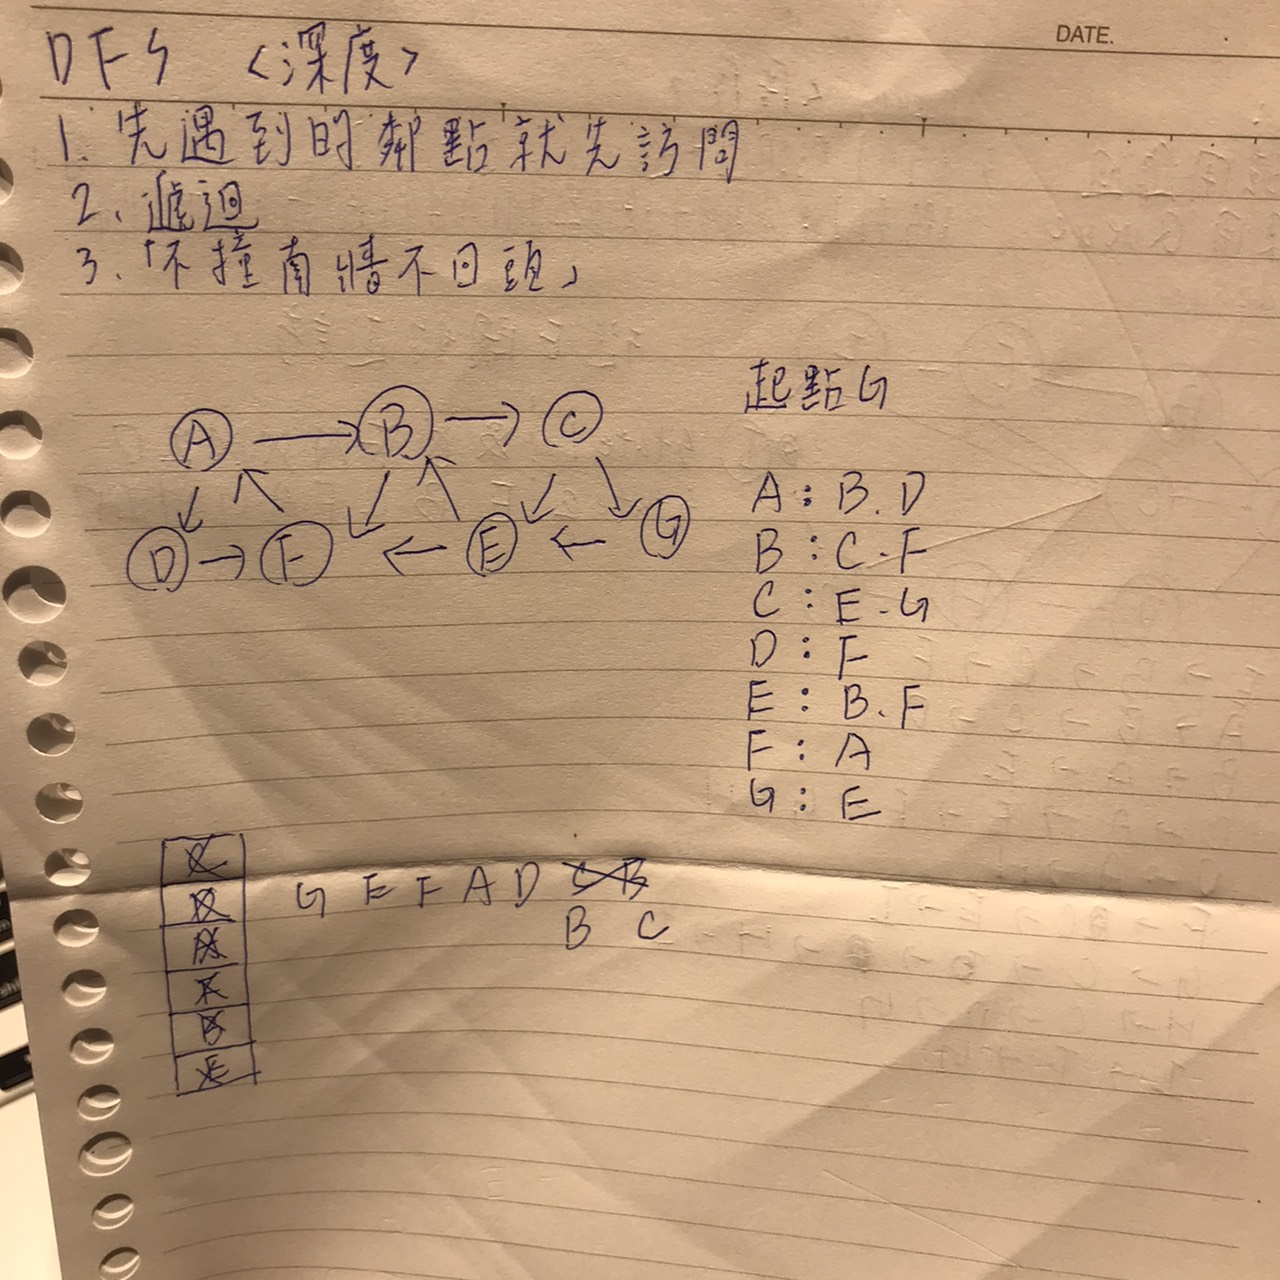 DATE.
DFS <深度>
1. 先遇到的鄰點就先訪問
2. 遞迴
3.「不撞南牆不回頭」
起點G
A B C
D F E G
A : B. D
B : C. F
C : E. G
D : F
E : B. F
F : A
G : E
C
D
A
F
B
E
G E F A D C B
B C